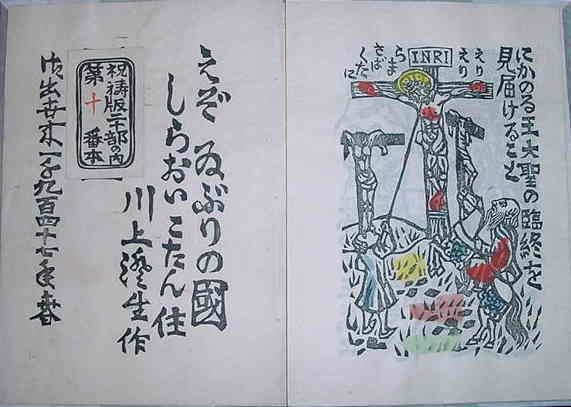 にかのる王大聖の臨終を
見届けること
えりえり
INRI
らま
さば
くたに
えぞゐぶりの國
しらおいこたん住
川上澄生作
祝祷版二十部の内
第十番本
御出世来一千九百四十七年春